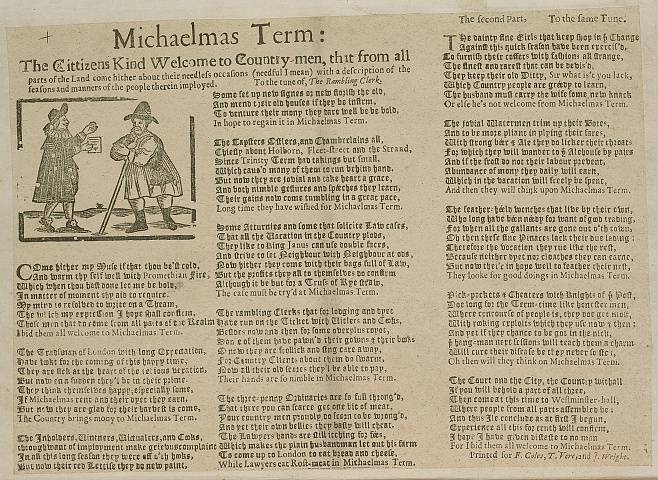 Michaelmas Term:
The Cittizens Kind Welcome to Country-men, that from all
parts of the Land come hither about their needless occasions (needful I mean) with a description of the
seasons and manners of the people therein imployed. To the tune of, The Rambling Clerk.
COme hither my Muse if that thou be'st cold,
And warm thy self well with Promethian fire,
Which when thou hast done let me be bold,
In matter of moment thy aid to require.
My mind is resolved to write on a Theam,
The which my expression I hope shall confirm,
Those men that do come from all parts of the Realm
I bid them all welcome to Michaelmas Term.
The Tradsman of London with long Expectation,
Have lookt for the coming of this happy time,
They are sick at the heart of the tedious vacation,
But now you shall find they'l be in their prime.
They think themselves happy, especially some,
If Michaelmas rent and their dyet they earn,
But now they are glad for their harvest is come,
The Country brings mony to Michaelmas Term.
The Inholders, Vintners, Victualers, and Cooks,
through want of imployment make grievous complaint
In all this long season they were off o'th hooks,
But now their red Lettise they do new paint,
Some set up new signes or new florish the old,
And mend their old houses if they be infirm,
To venture their mony they dare well be bold,
In hope to regain it in Michaelmas Term.
The Tapsters Ostlers, and Chamberlains all,
Chiefly about Holborn, Fleet-street and the Strand,
Since Trinity Term had takings but small,
Which caus'd many of them to run behind hand.
But now they are jovial and take heart a grace,
And both nimble gestures and speeches they learn,
Their gains now come tumbling in a great pace,
Long time they have wished for Michaelmas Term.
Some Atturnies and some that solicite Law cases,
That all the Vacation in the Country plods,
They like to King Janus can use double faces,
And strive to set Neighbour with Neighbour at ods,
Now hither they come with their bags full of Law,
But the profits they all to themselves do confirm
Although it be but for a Truss of Rye straw,
The case must be try'd at Michaelmas Term.
The rambling Clerks that for lodging and dyet
Have run on the Ticket with Victlers and Cooks,
Before now and then for some overplus royot,
Some of them have pawn'd their gowns & their books
Now they are frollick and sing care away,
For Country Clients about them do swarm,
Now all their old scares they'l be able to pay,
Their hands are so nimble in Michaelmas Term.
The three-penny Ordinaries are so full throng'd,
That there you can scarce get one bit of meat,
Your country men proudly do scorn to be wrong'd,
And yet their own bellies they basely will cheat.
The Lawyers hands are still itching for fees,
Which makes the plain husbandman let out his farm
To come up to London to eat bread and cheese,
While Lawyers eat Rost-meat in Michaelmas Term.
The second Part, To the same Tune.
THe dainty fine Girls that keep shop in ye Change
Against this quick season have been exercis'd,
To furnish their coffers with fashions all strange,
The finest and rarest that can be devis'd,
They keep their old Ditty, Sir what is't you lack,
Which Country people are greedy to learn,
The husband must carry the wife some new knack
Or else he's not welcome from Michaelmas Term.
The jovial Watermen trim up their Botes,
And to be more pliant in plying their fares,
With strong beer & Ale they do licker their throats
For which they will wander to ye Alehouse by pairs
And if the frost do not their labour prevent,
Abundance of mony they daily will earn,
Which in the vacation will freely be spent,
And then they will think upon Michaelmas Term.
The feather-heel'd wenches that live by their own,
Who long have been needy for want of good trading,
For when all the gallants are gone out o'th town,
Oh then these fine Pinaces lack their due lading:
Therefore the vacation they rue like the rest,
Because neither dyet nor cloathes they can earne,
But now their in hope well to feather their nest,
They looke for good doings in Michaelmas Term.
Pick-pockets & Cheaters with Knights of ye Post,
Do long for the Term-time like honester men,
Where concourse of people is, they doe get most,
With cooling exploits which they use now & then:
And yet if they chance to be got in the nick,
ye hang-man next sessions will teach them a charm
Will cure their disease be they never so sick,
Oh then will they think on Michaelmas Term.
The Court and the City, the Country withall
If you will behold a part of all three,
Then come at this time to Westminster-hall,
Where people from all parts assembled be:
And thus Ile conclude as at first I begun,
Experience all this for truth will confirm,
I hope I have given distaste to no man
For I bid them all welcome to Michaelmas Term.
Printed for F. Coles, T. Vere, and J. Wright.